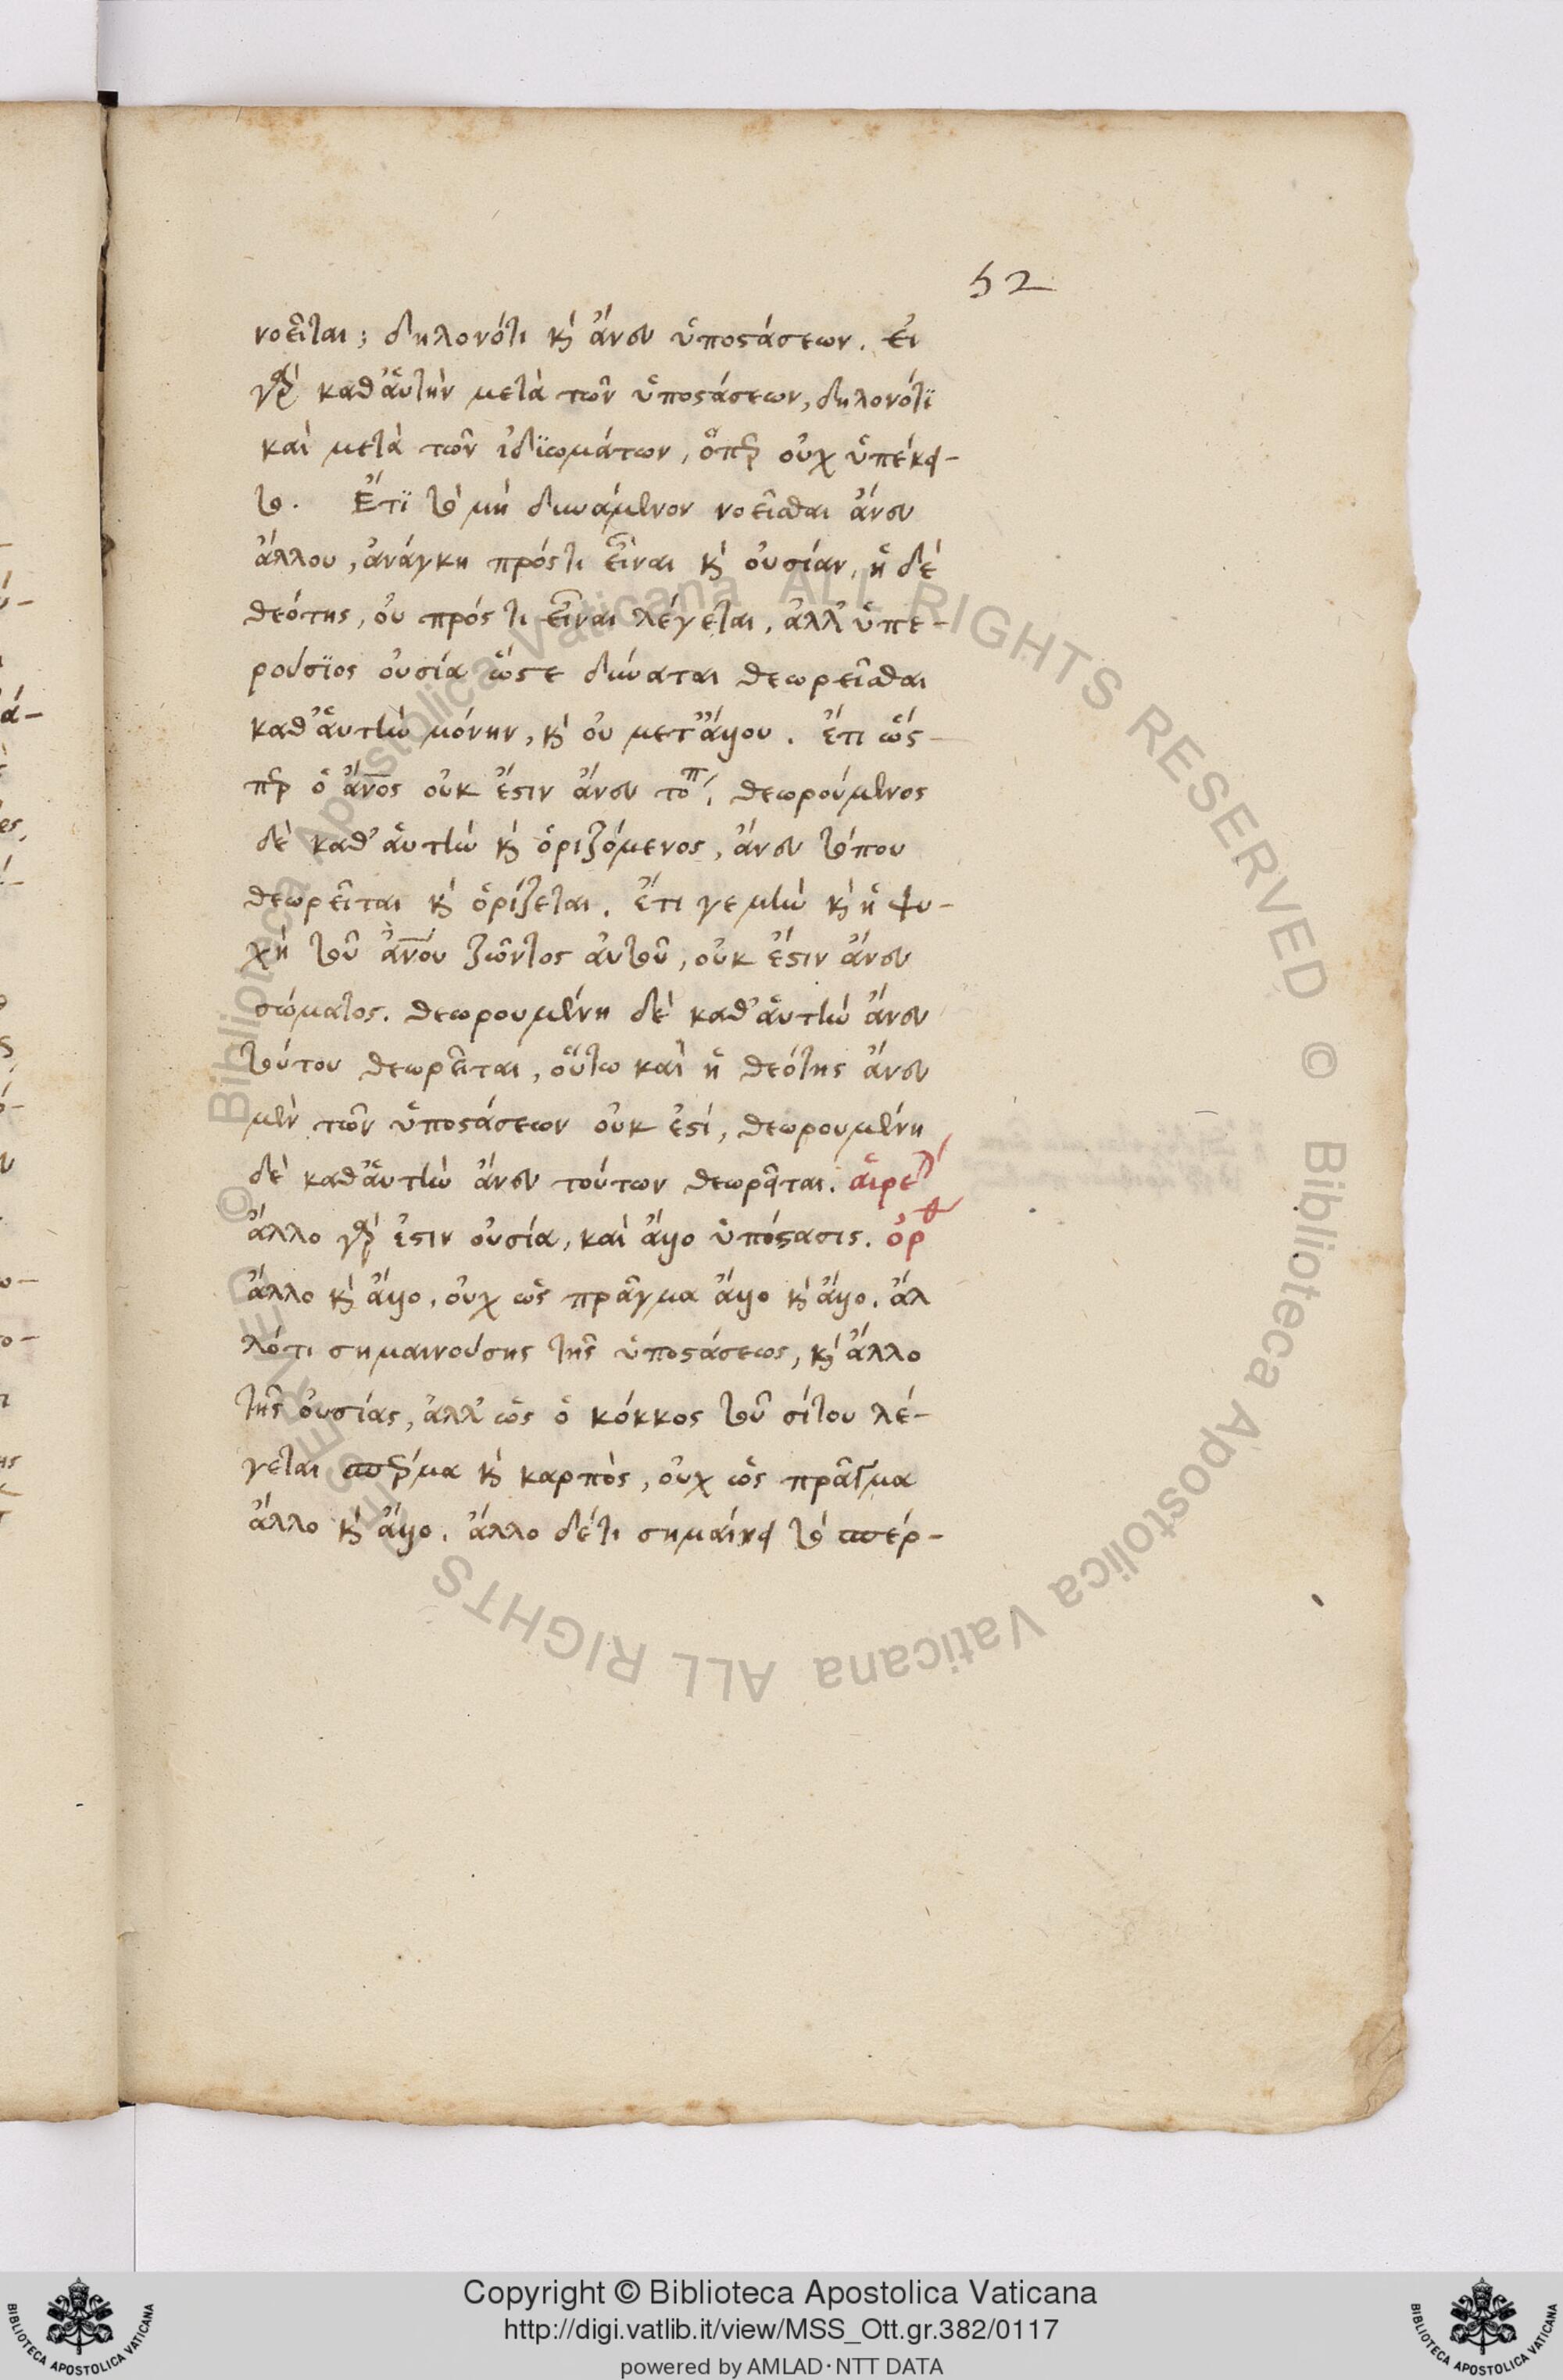 52
νοεῖται; δηλονότι κὶ ἄνευ ὑποστάσεων. εἰ
γὰρ καθ' αὑτὴν μετὰ τῶν ὑποστάσεων, δηλονότι
καὶ μετὰ τῶν ἰδϊωμάτων, ὅπερ οὐχ ὑπέκει-
το. Ἔτϊ τὸ μὴ δυνάμενον νοεῖσθαι ἄνευ
ἄλλου, ἀνάγκη πρόςτι εἶναι κὶ οὐσίαν, ἡ δὲ
θεότης, οὐ πρός τι εἶναι λέγεται, ἀλλ' ὑπε-
ρούσϊος οὐσία ὥστε δύναται θεωρεῖσθαι
καθ' αὑτὴν μόνην, κὶ οὐ μετ' ἄλλου. ἔτι ὥσ-
περ ὁ ἄνος οὐκ ἔστιν ἄνευ τόπ, θεωρούμενος
δὲ καθ' αὑτὴν κὶ ὁριζόμενος, ἄνευ τόπου
θεωρεῖται κὶ ὁρίζεται. ἔτι γε μὴν κὶ ἡ ψυ-
χὴ τοῦ ἀνου ζῶντος αὐτοῦ, οὐκ ἔστιν ἄνευ
σώματος. θεωρουμένη δὲ καθ' αὑτὴν ἄνευ
τούτου θεωρεῖται, οὕτω καὶ ἡ θεότης ἄνευ
μὲν τῶν ὑποστάσεων οὐκ ἐστί, θεωρουμένη
δὲ καθ' αὑτὴν ἄνευ τούτων θεωρεῖται. αἱρε
ἄλλο γάρ ἐστιν οὐσία, καὶ ἄλλο ὑπόστασις. ὀρθ
ἄλλο κὶ ἄλλο, οὐχ ὡς πρᾶγμα ἄλλο κὶ ἄλλο. ἄλ
λότι σημαινούσης τῆς ὑποστάσεως, κὶ ἄλλο
τῆς οὐσίας, ἀλλ' ὡς ὁ κόκκος τοῦ σίτου λέ-
γεται σπέρμα κὶ καρπὸς, οὐχ ὡς πρᾶγμα
ἄλλο κὶ ἄλλο. ἄλλο δέτι σημαίνει τὸ σπέρ-
© Biblioteca Apostolica Vaticana ALL RIGHTS RESERVED
© Biblioteca Apostolica Vaticana ALL RIGHTS RESERVED
BIBLIOTECA APOSTOLICA VATICANA
Copyright © Biblioteca Apostolica Vaticana
http://digi.vatlib.it/view/MSS_Ott.gr.382/0117
powered by AMLAD·NTT DATA
BIBLIOTECA APOSTOLICA VATICANA